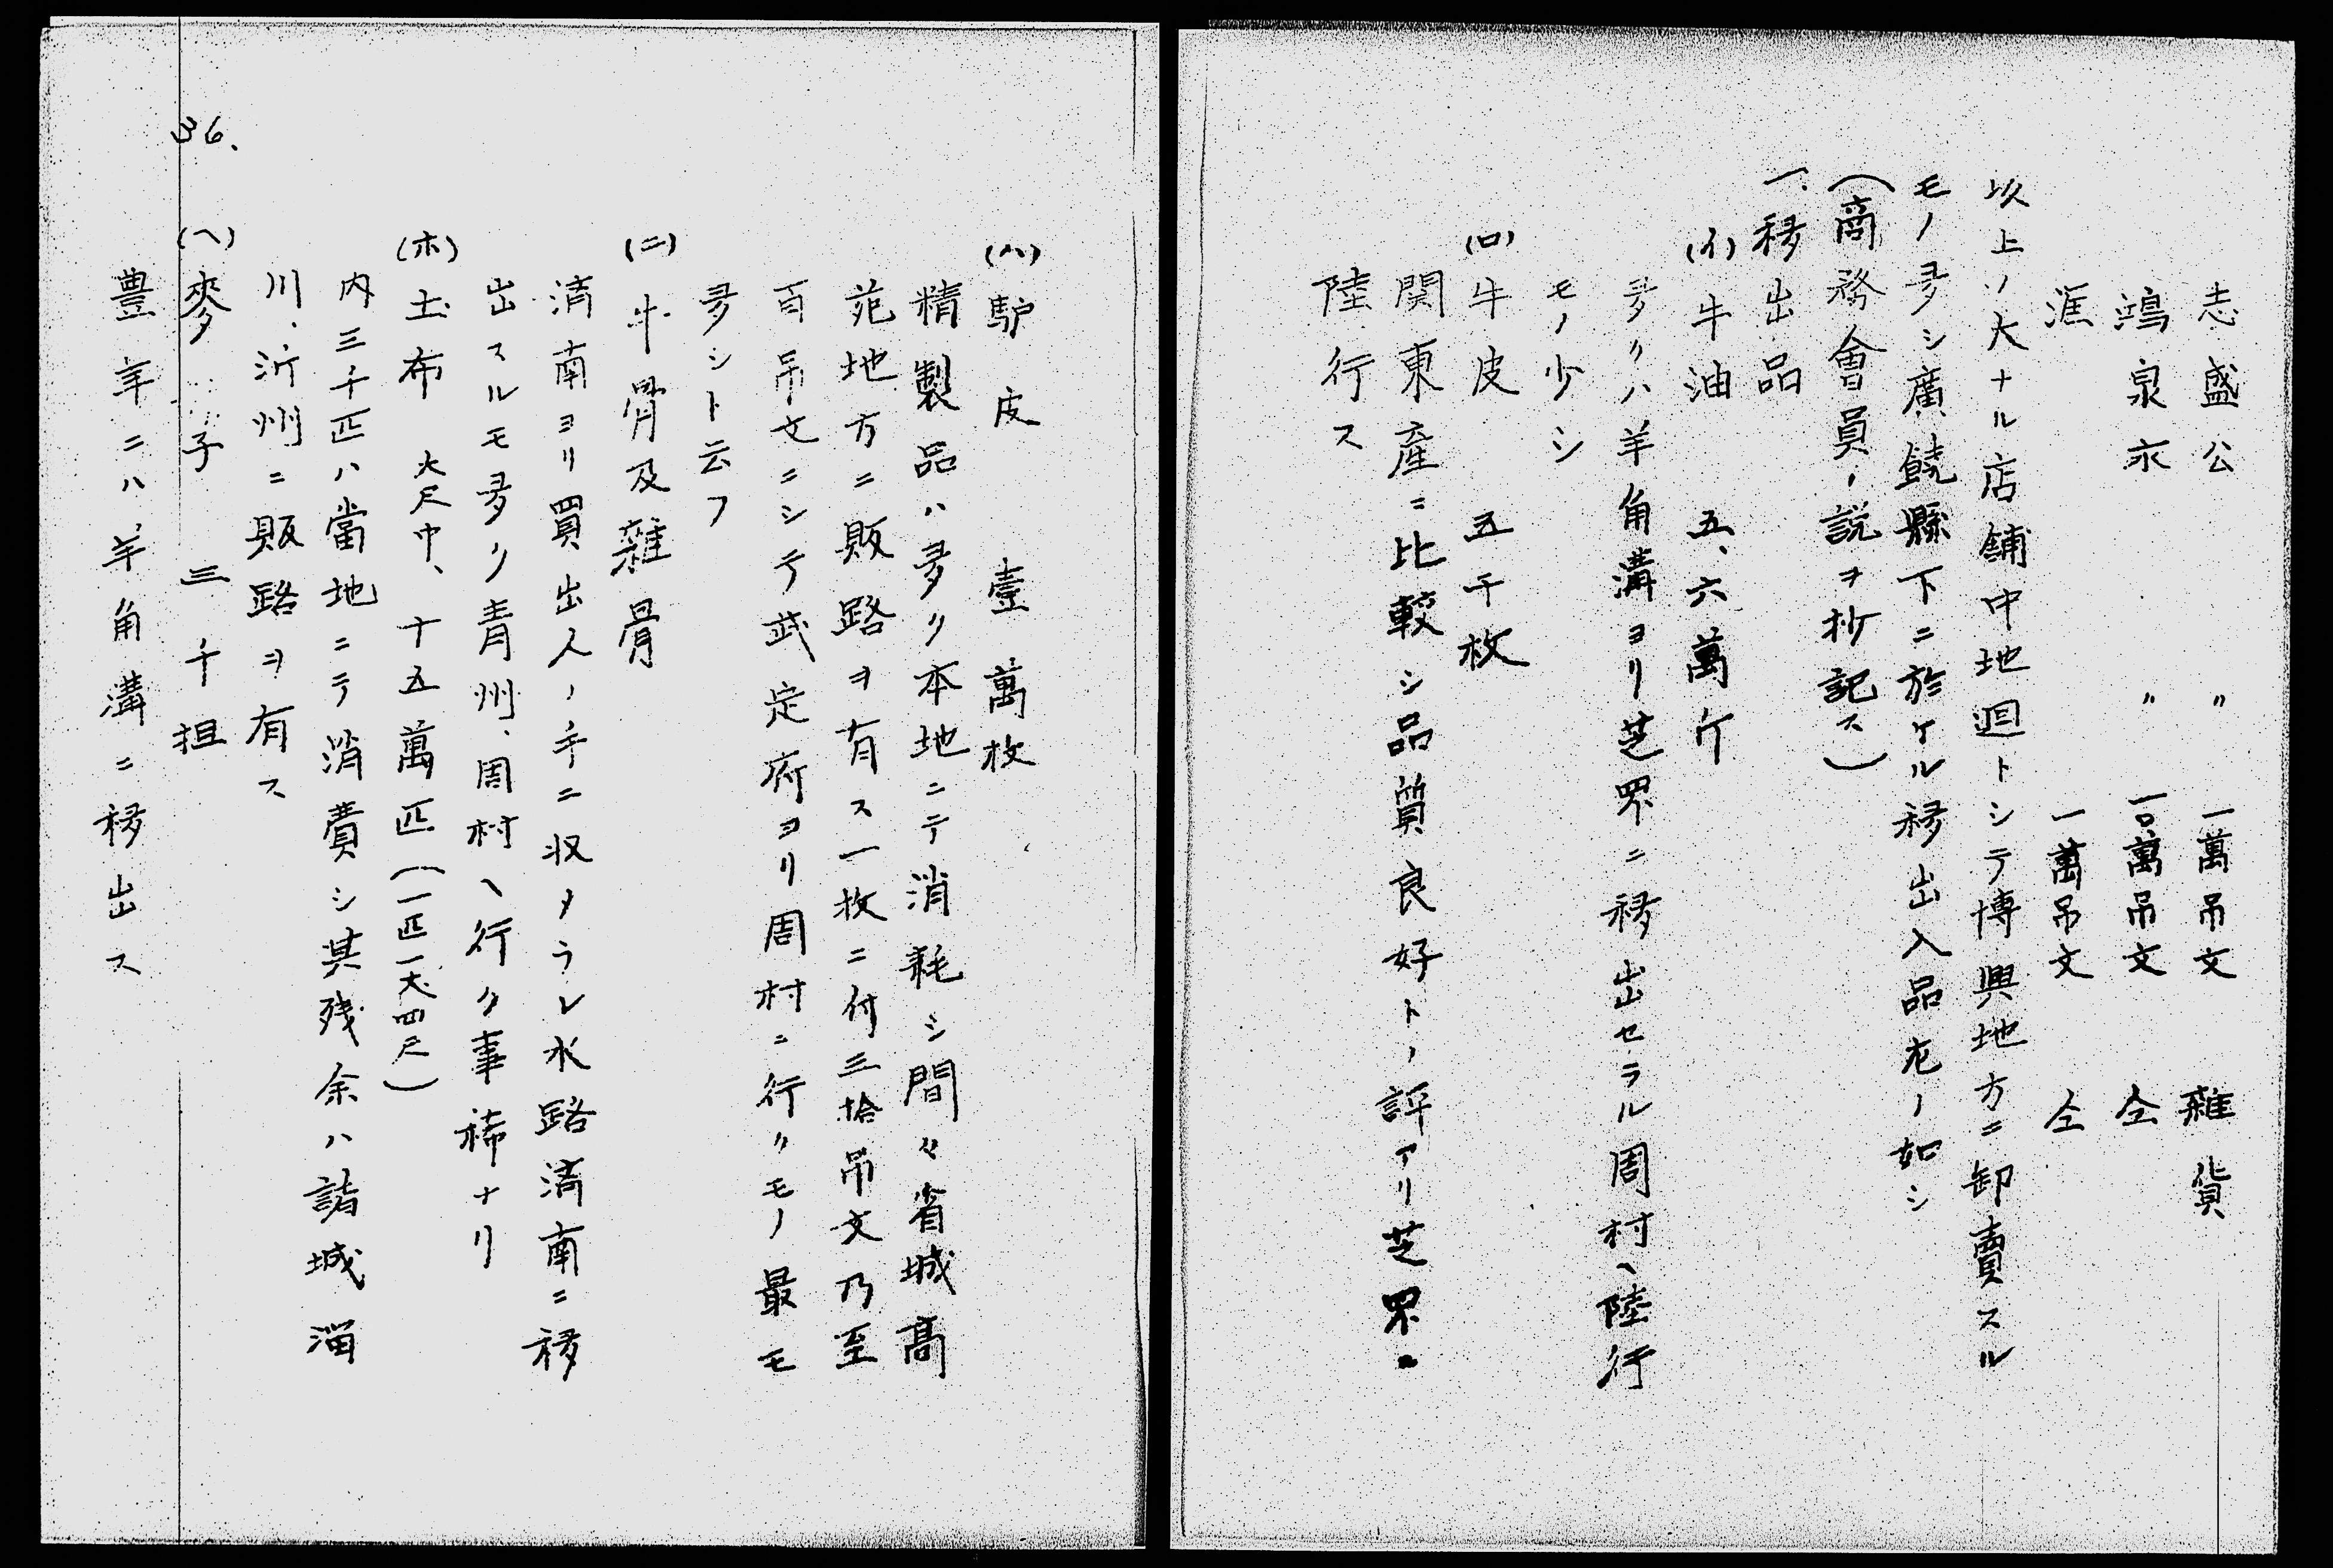 志盛公 〃 一萬吊文 雜貨
鴻泉永 〃 一萬吊文 仝
滙 一萬吊文 仝
以上ノ大ナル店舗中地廻トシテ博興地方ニ卸賣スル
モノ多シ廣饒縣下ニ於ケル移出入品左ノ如シ
(商務會員ノ説ヲ抄記ス)
一、移出品
(イ)牛油 五、六萬斤
多クハ羊角溝ヨリ芝罘ニ移出セラル周村ヘ陸行
モノ少シ
(ロ)牛皮 五千枚
関東産ニ比較シ品質良好トノ評アリ芝罘ニ
陸行ス
(ハ)驢皮 壹萬枚
精製品ハ多ク本地ニテ消耗シ間々省城高
苑地方ニ販路ヲ有ス一枚ニ付三拾吊文乃至
百吊文ニシテ武定府ヨリ周村ニ行クモノ最モ
多シト云フ
(ニ)牛骨及雜骨
済南ヨリ買出人ノ手ニ収メラレ水路済南ニ移
出スルモ多ク青州、周村ヘ行ク事稀ナリ
(ホ)土布 大尺巾、十五萬匹(一匹一丈四尺)
内三千匹ハ當地ニテ消費シ其残余ハ諸城淄
川、沂州ニ販路ヲ有ス
36.
(ヘ)麥子 三千担
豊年ニハ羊角溝ニ移出ス